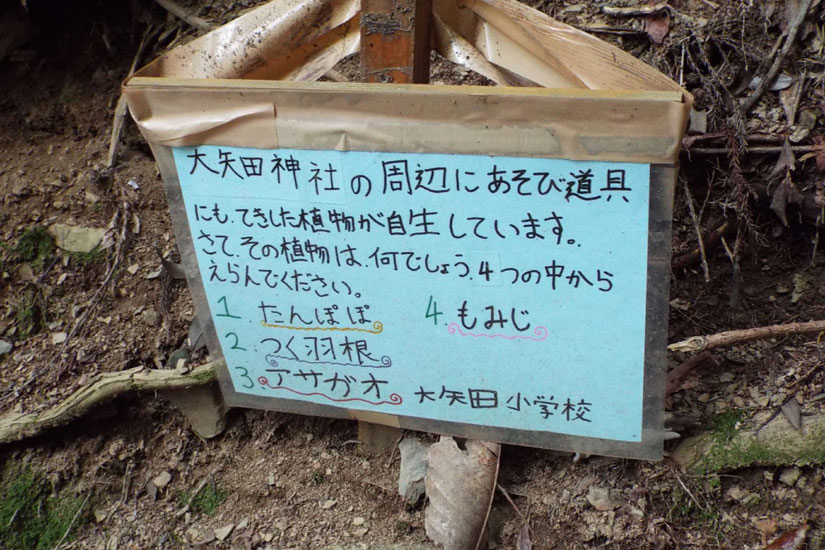 大矢田神社の周辺にあそび道具
にも、てきした植物が自生しています。
さて、その植物は、何でしょう。4つの中から
えらんでください。
1. たんぽぽ 4. もみじ
2. つく羽根
3. アサガオ 大矢田小学校